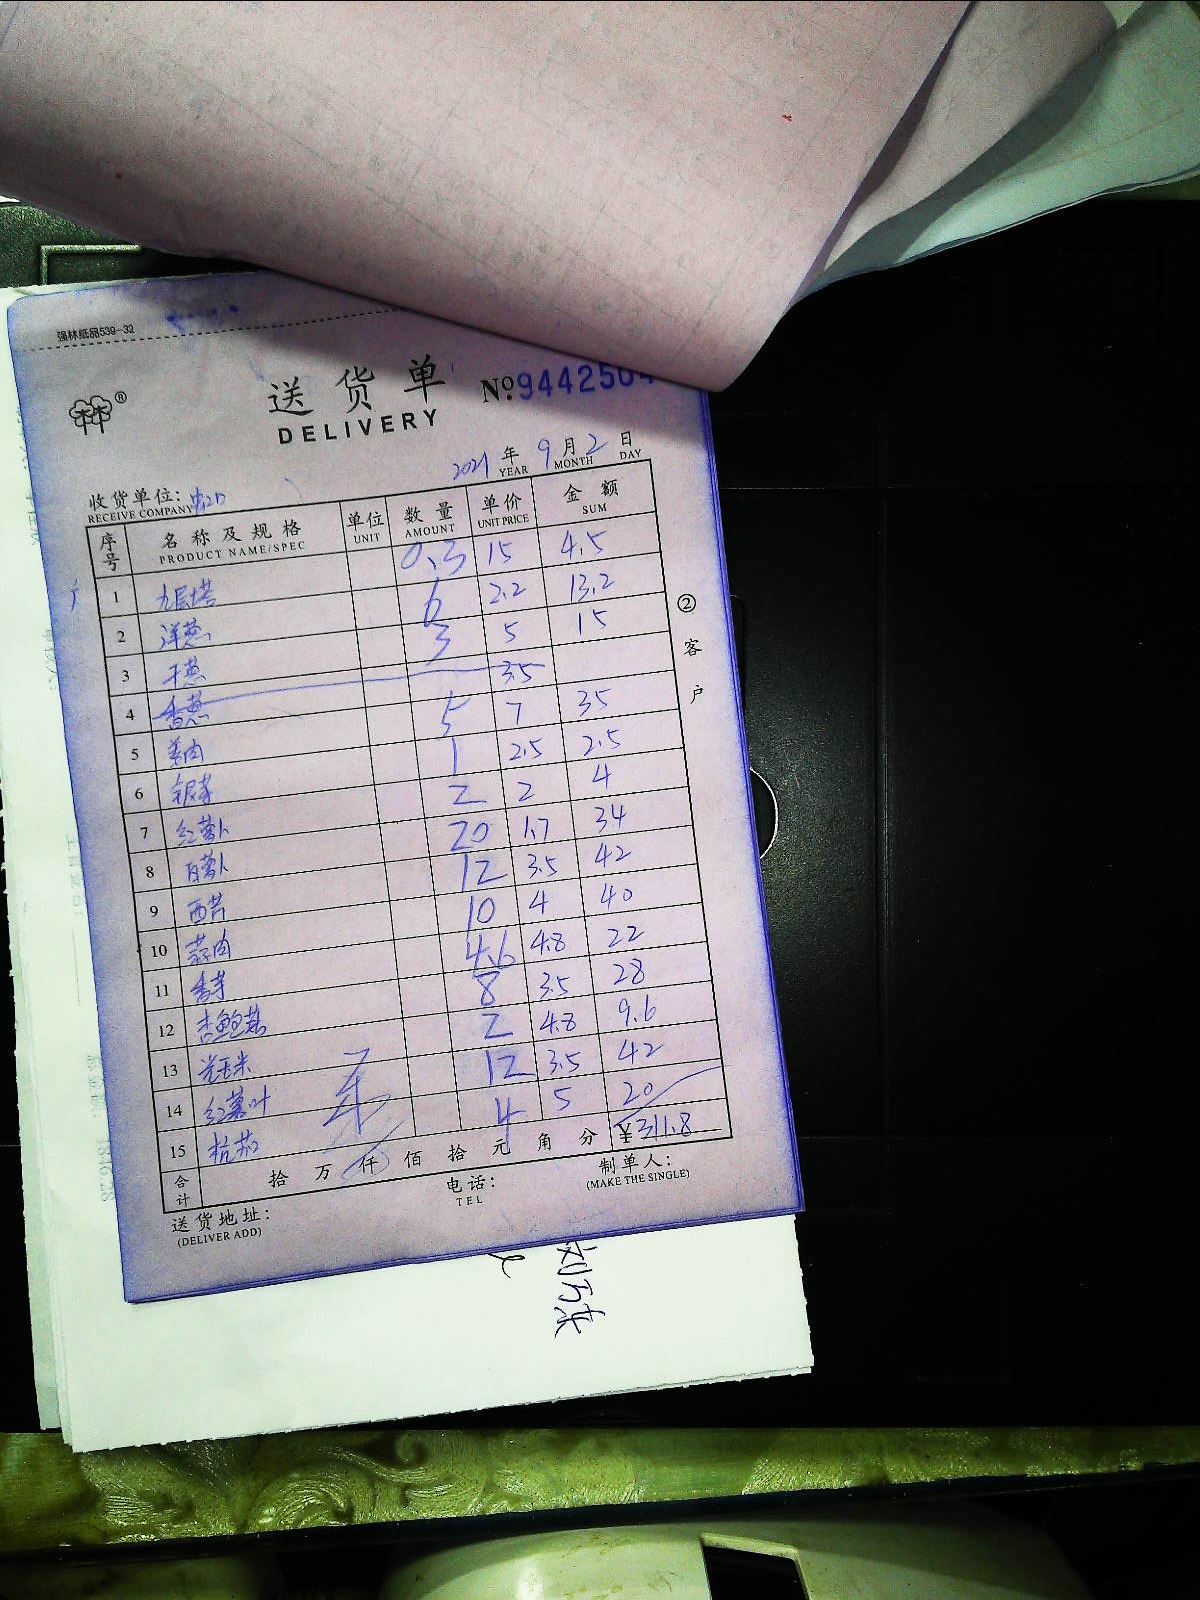 强林纸品539-32
®
送货单 No.9442504
DELIVERY
2021年 9月 2日
YEAR MONTH DAY
收货单位:
RECEIVE COMPANY
序号 名称及规格 单位 数量 单价 金额
PRODUCT NAME/SPEC UNIT AMOUNT UNIT PRICE SUM
1 九层塔 0.3 15 4.5
2 洋葱 6 2.2 13.2
3 干葱 3 5 15
4 香葱 3.5
5 姜肉 5 7 35
6 银芽 1 2.5 2.5
7 红萝卜 2 2 4
8 白萝卜 20 1.7 34
9 西芹 12 3.5 42
10 蒜肉 10 4 40
11 香芋 4.6 4.8 22
12 杏鲍菇 8 3.5 28
13 光玉米 2 4.8 9.6
14 红薯叶 12 3.5 42
15 杭茄 4 5 20
合计 拾 万 仟 佰 拾 元 角 分 ¥311.8
送货地址: 电话: 制单人:
(DELIVER ADD) TEL (MAKE THE SINGLE)
② 客户